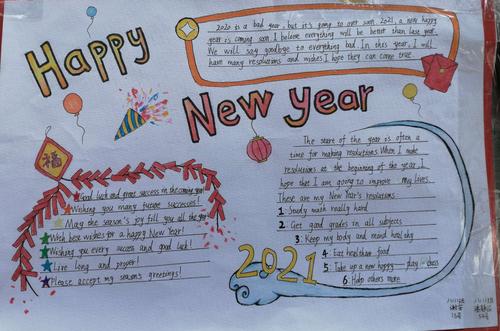 Happy
New year
2020 is a bad year, but it's going to over soon. 2021, a new happy
year is coming soon. I believe everything will be better than last year.
We will say goodbye to everything bad. In this year, I will
have many resolutions and wishes. I hope they can come true.
福
Good luck and great success in the coming year!
Wishing you many future successes!
May the season's joy fill you all the year!
With best wishes for a happy New Year!
Wishing you every success and good luck!
Live long and proper!
Please accept my season's greetings!
2021
The start of the year is often a
time for making resolutions. When I make
resolutions at the beginning of the year, I
hope that I am going to improve my lives.
These are my New Year's resolutions
1 Study math really hard
2 Get good grades in all subjects
3 Keep my body and mind healthy
4 Eat healthier food
5 Take up a new hoppy play chess
6 Help others more